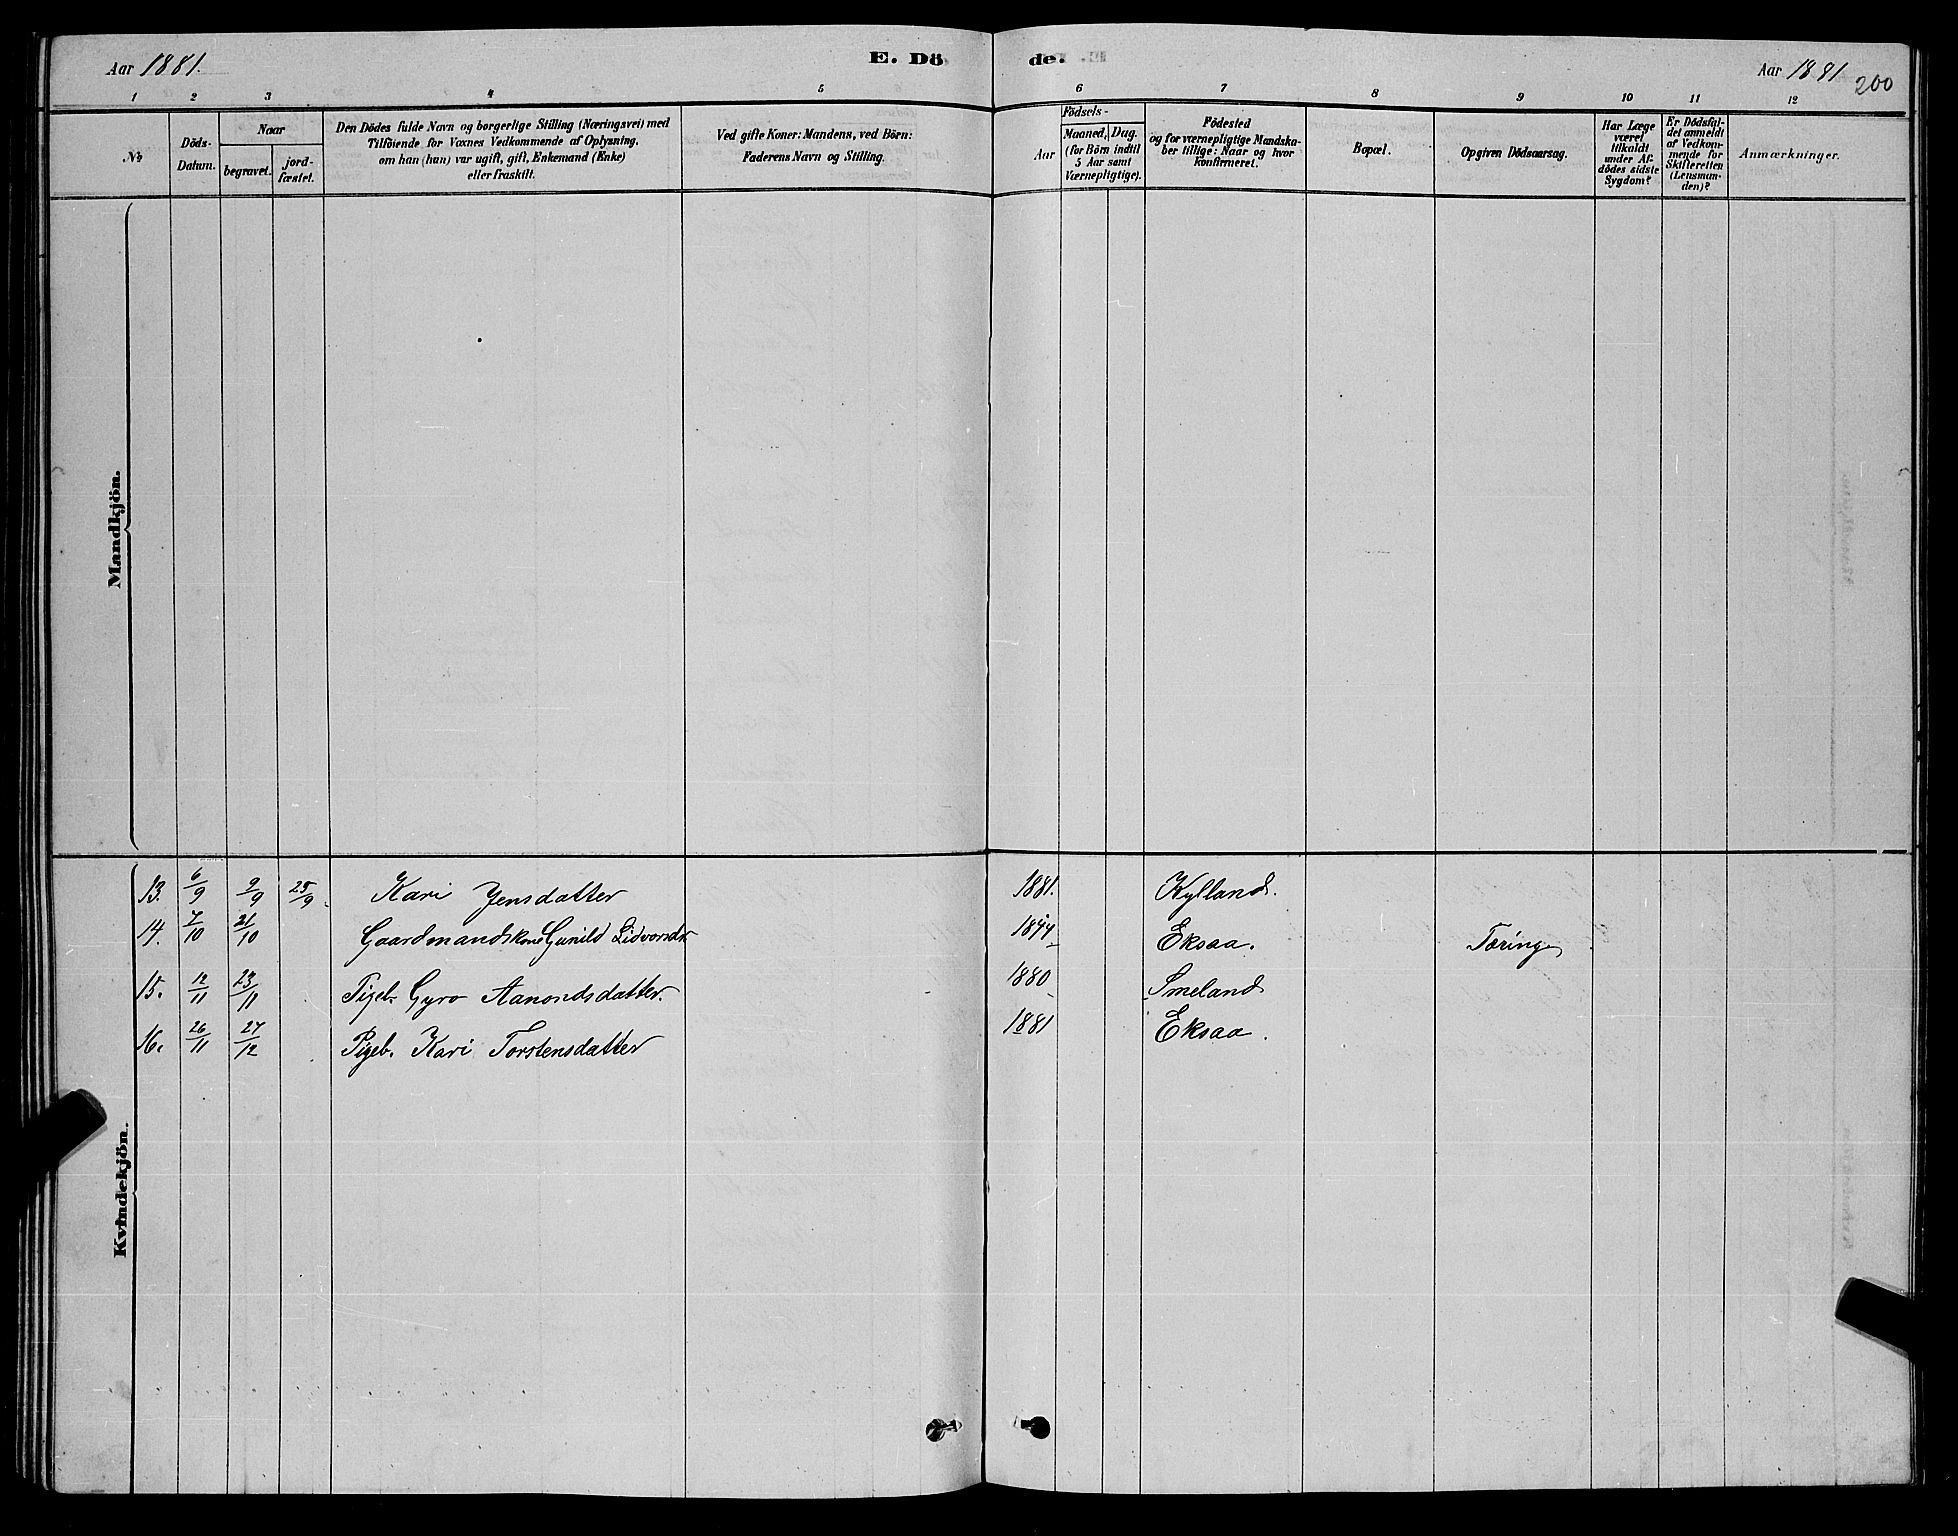 Aar 1881. E. Dö de. Aar 1881 200
1 2 3 4 5 6 7 8 9 10 11 12
№
Döds-
Datum.
Naar
begravet.
jord-
fæstet.
Den Dödes fulde Navn og borgerlige Stilling (Næringsvei) med
Tilföiende for Voxnes Vedkommende af Oplysning,
om han (hun) var ugift, gift, Enkemand (Enke)
eller fraskilt.
Ved gifte Koner: Mandens, ved Börn:
Faderens Navn og Stilling.
Födsels-
Aar
Maaned, Dag.
(for Börn indtil
5 Aar samt
Værnepligtige).
Födested
og for værnepligtige Mandska-
ber tillige: Naar og hvor
konfirmeret.
Bopæl.
Opgiven Dödsaarsag.
Har Læge
været
tilkaldt
under Af-
dödes sidste
Sygdom?
Er Dödsfal-
det anmeldt
af Vedkom-
mende for
Skifteretten
(Lensman-
den)?
Anmærkninger.
Mandkjön.
Kvindekjön.
13. 6/9 9/9 25/9. Kari Jensdatter 1881. Kylland.
14. 7/10 21/10 Gaardmandskone Gunild Lidvorsdr. 1844 Eksaa. Tæring
15. 12/11 23/11 Pigeb. Gyro Aanondsdatter. 1880 Smeland
16. 26/11 27/12 Pigeb. Kari Torstensdatter 1881 Eksaa.